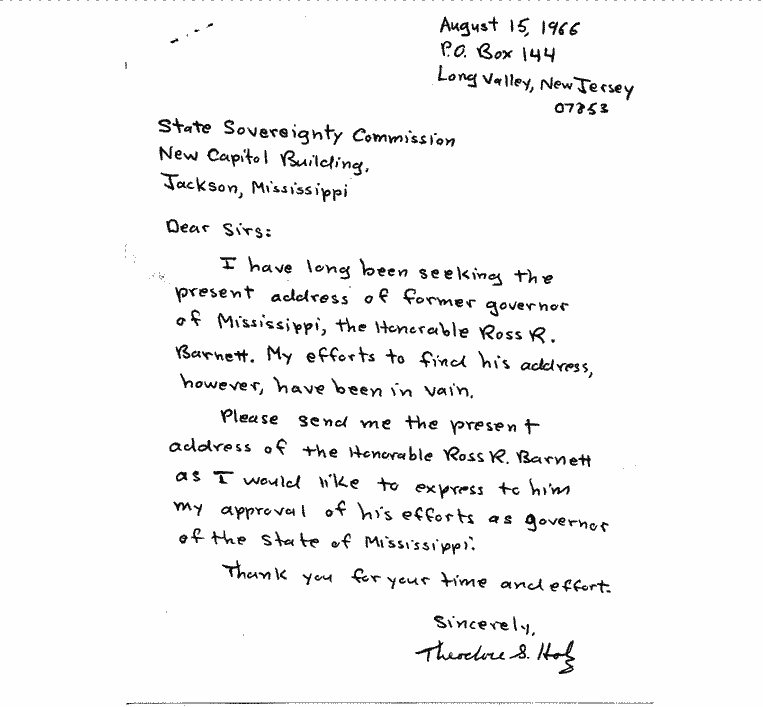 August 15, 1966
P.O. Box 144
Long Valley, New Jersey
07853
State Sovereignty Commission
New Capitol Building,
Jackson, Mississippi
Dear Sirs:
I have long been seeking the
present address of former governor
of Mississippi, the Honorable Ross R.
Barnett. My efforts to find his address,
however, have been in vain.
Please send me the present
address of the Honorable Ross R. Barnett
as I would like to express to him
my approval of his efforts as governor
of the State of Mississippi.
Thank you for your time and effort.
Sincerely,
Theodore S.